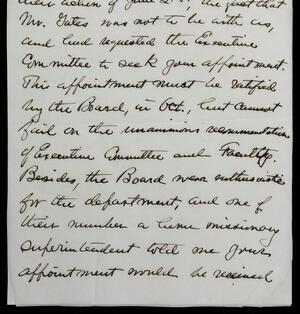 their action of June 21, the fact that
Mr. Gates was not to be with us,
and had requested the Executive
Committee to seek your appointment.
This appointment must be ratified
by the Board, in Oct, but cannot
fail on the unanimous recommendation
of Executive Committee and Faculty.
Besides, the Board were enthusiastic
for the department, and one of
their number a home missionary
superintendent told me your
appointment would be received